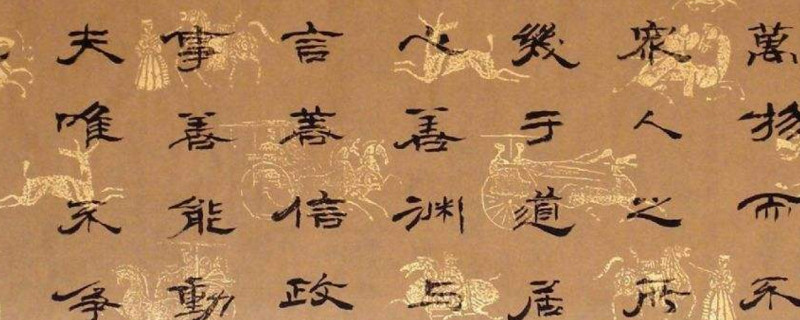 萬物而不
衆人之所
幾于道居
心善淵与
言善信政
事善能動
夫唯不争